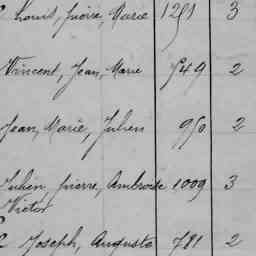 Louis, Pierre, Marie 1251 3
Vincent, Jean, Marie 549 2
Jean, Marie, Julien 950 2
Julien, Pierre, Ambroise 1009 3
Victor
Joseph, Auguste 781 2